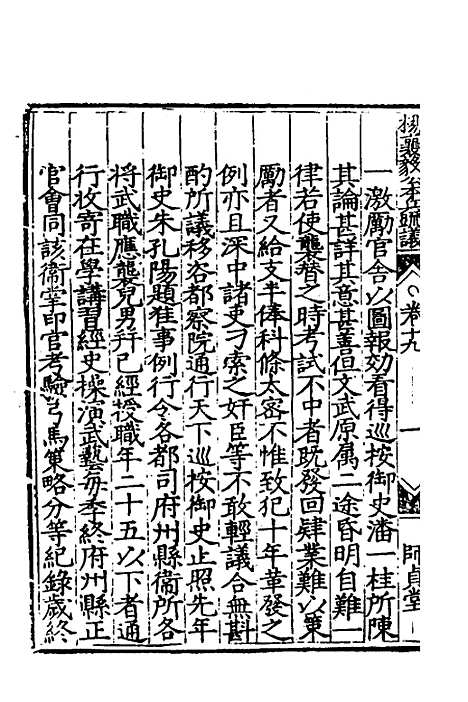 楊襄毅公本兵疏議
卷十九
一
師貞堂
一激勵官舍以圖報効看得巡按御史潘一桂所陳
其論甚詳其意甚善但文武原属二途昏明自難一
律若使襲替之時考試不中者既發回肄業難以策
勵者又給支半俸科條太密不惟致犯十年革發之
例亦且深中諸吏刁索之奸臣等不敢輕議合無斟
酌所議移咨都察院通行天下巡按御史止照先年
御史朱孔陽題准事例行令各都司府州縣衞所各
将武職應襲兒男并已經授職年二十五以下者通
行收寄在學講習經史操演武藝每季終府州縣正
官會同該衞掌印官考驗弓馬策略分等紀錄歲終